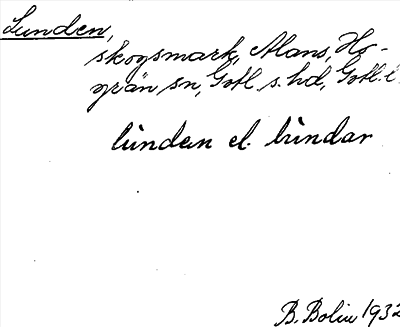 Lunden,
skogsmark, Alans, Ho-
grän sn, Gotl s. hd, Gotl. l
lùnden el. lùndar
B. Bolin 1932